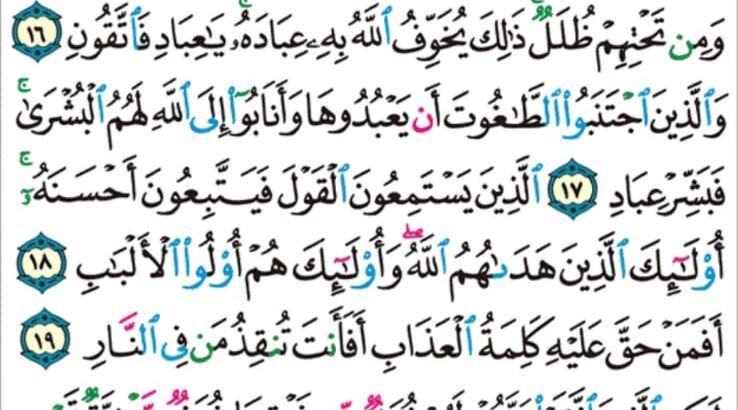 وَمِن تَحْتِهِمْ ظُلَلٌ ۚ ذَٰلِكَ يُخَوِّفُ ٱللَّهُ بِهِۦ عِبَادَهُۥ ۚ يَـٰعِبَادِ فَٱتَّقُونِ ١٦
وَٱلَّذِينَ ٱجْتَنَبُوا۟ ٱلطَّـٰغُوتَ أَن يَعْبُدُوهَا وَأَنَابُوٓا۟ إِلَى ٱللَّهِ لَهُمُ ٱلْبُشْرَىٰ ۚ
فَبَشِّرْ عِبَادِ ١٧ ٱلَّذِينَ يَسْتَمِعُونَ ٱلْقَوْلَ فَيَتَّبِعُونَ أَحْسَنَهُۥٓ ۚ
أُو۟لَـٰٓئِكَ ٱلَّذِينَ هَدَىٰهُمُ ٱللَّهُ ۖ وَأُو۟لَـٰٓئِكَ هُمْ أُو۟لُوا۟ ٱلْأَلْبَـٰبِ ١٨
أَفَمَنْ حَقَّ عَلَيْهِ كَلِمَةُ ٱلْعَذَابِ أَفَأَنتَ تُنقِذُ مَن فِى ٱلنَّارِ ١٩